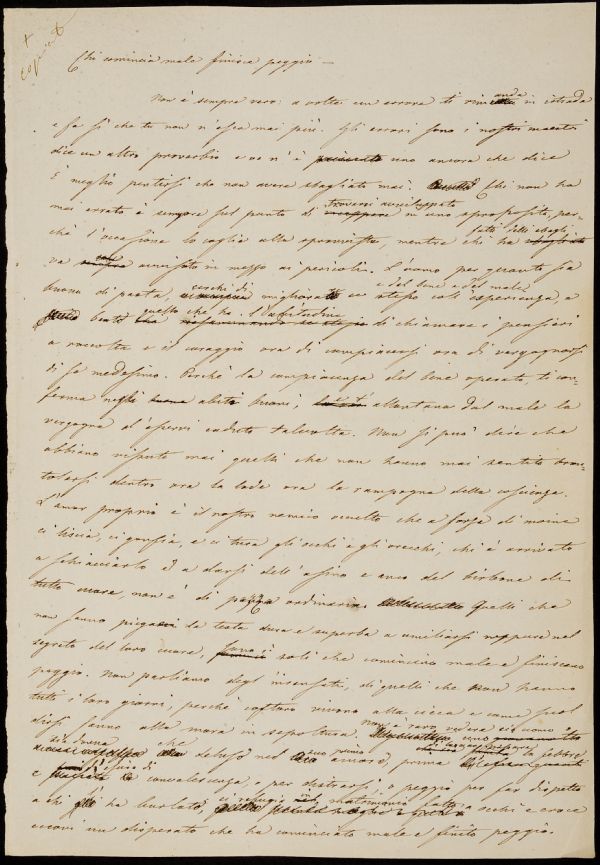 +
copiat
Chi comincia male finisce peggio —
Non è sempre vero: a volte un errore ti rimanda in istrada
e fa sì che tu non n'esca mai più. Gli errori sono i nostri maestri
dice un altro proverbio e ve n'è uno ancora che dice
È meglio pentirsi che non avere sbagliato mai. Chi non ha
mai errato è sempre sul punto di trovarsi avviluppato in uno sproposito, per-
chè l'occasione lo coglie alla sprovvista, mentre chi ha fatti degli sbagli,
va avvisato in mezzo ai pericoli. L'uomo per quanto sia
buono di pasta, cerchi di migliorare se stesso coll'esperienza, e del bene e del male e
beato quello che ha l'abitudine di chiamare i pensieri
a raccolta e il coraggio ora di compiacersi ora di vergognarsi
di se medesimo. Perchè la compiacenza del bene operato, ti con-
ferma negli abiti buoni, allontana dal male la
vergogna d'esservi caduto talvolta. Non si può dire che
abbiano vissuto mai quelli che non hanno mai sentito
dentro ora la lode ora la rampogna della coscienza.
L'amor proprio è il nostro nemico occulto che a forza di moine
ci liscia, ci gonfia, e ci tura gli occhi e gli orecchi, chi è arrivato
a schiacciarlo e a darsi dell'asino e anco del birbone di
tutto cuore, non è di pazza ordinaria. Quelli che
non sanno piegare la testa dura e superba a umiliarsi neppure nel
segreto del loro cuore, sono i soli che cominciano male e finiscono
peggio. Non parliamo degl'insensati, di quelli che non hanno
tutti i loro giorni, perchè costoro vivono alla cieca e come suol
dirsi fanno alla mora in sepoltura. Non è raro vedere un uomo
che deluso nel suo primo amore, prima
e di convalescenza, o per distrarsi, o peggio per far dispetto
a chi gli ha burlato, si rifugia nel matrimonio a occhi e croce
eccovi un disperato che ha cominciato male e finito peggio.